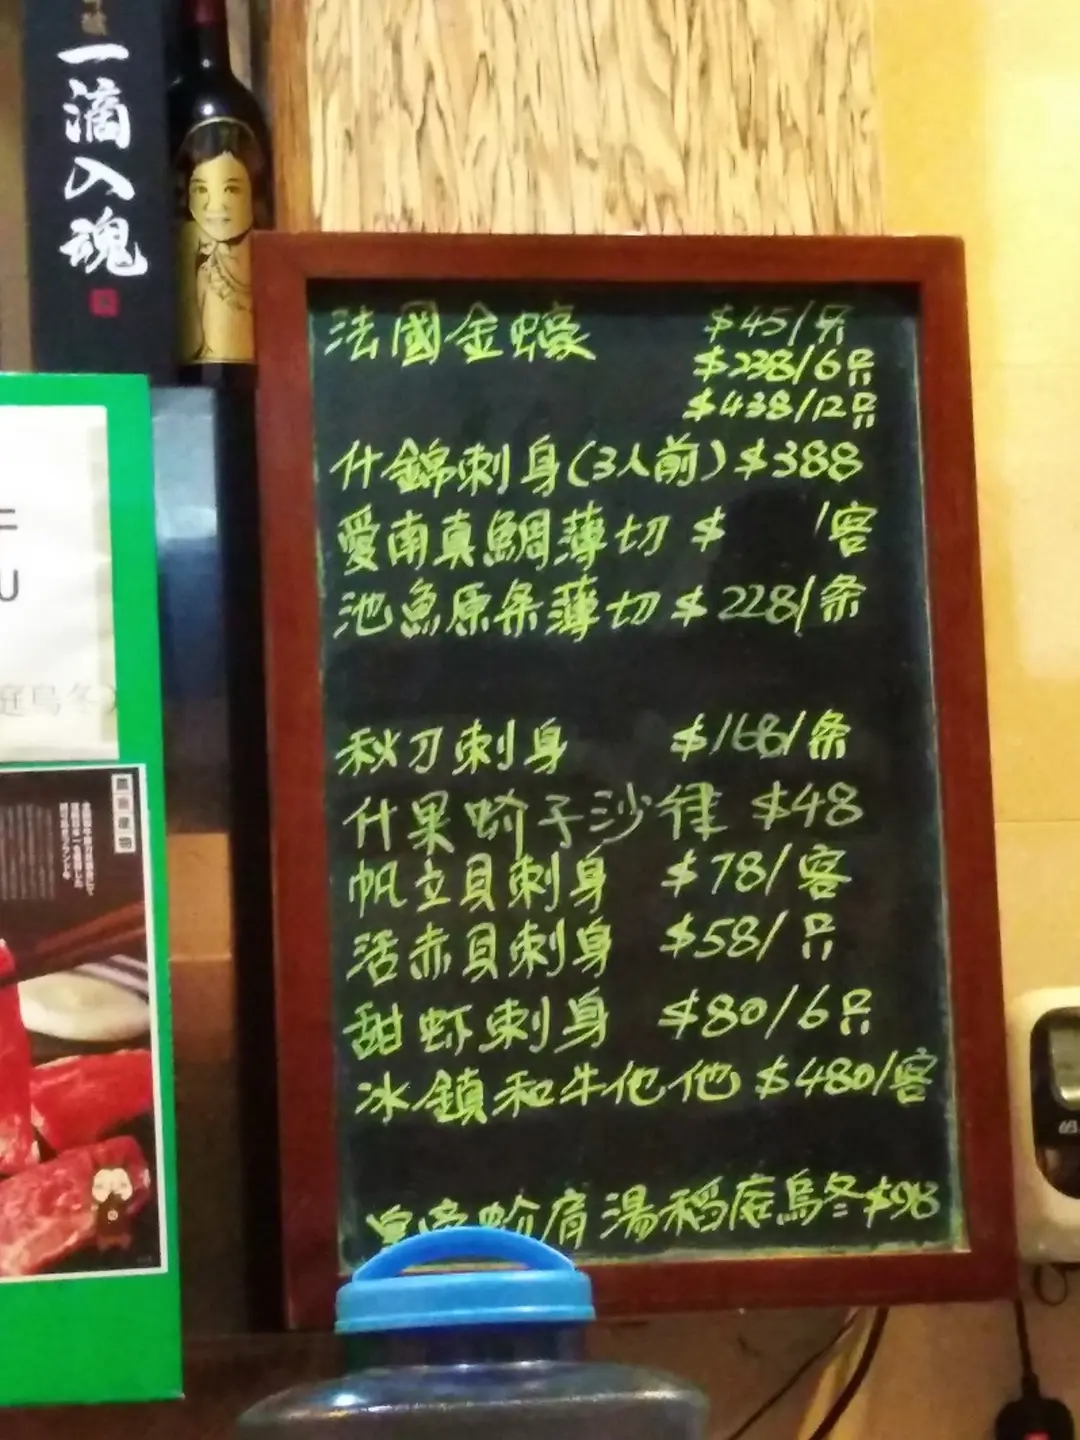 一滴入魂
法國金蠔 $45/只
$238/6只
$438/12只
什錦刺身(3人前) $388
愛南真鯛薄切 $ /客
池魚原条薄切 $228/条
秋刀刺身 $168/条
什果蚧子沙律 $48
帆立貝刺身 $78/客
活赤貝刺身 $58/只
甜虾刺身 $80/6只
冰鎮和牛他他 $480/客
皇帝蚧肩湯稻庭烏冬 $98
庭烏冬)